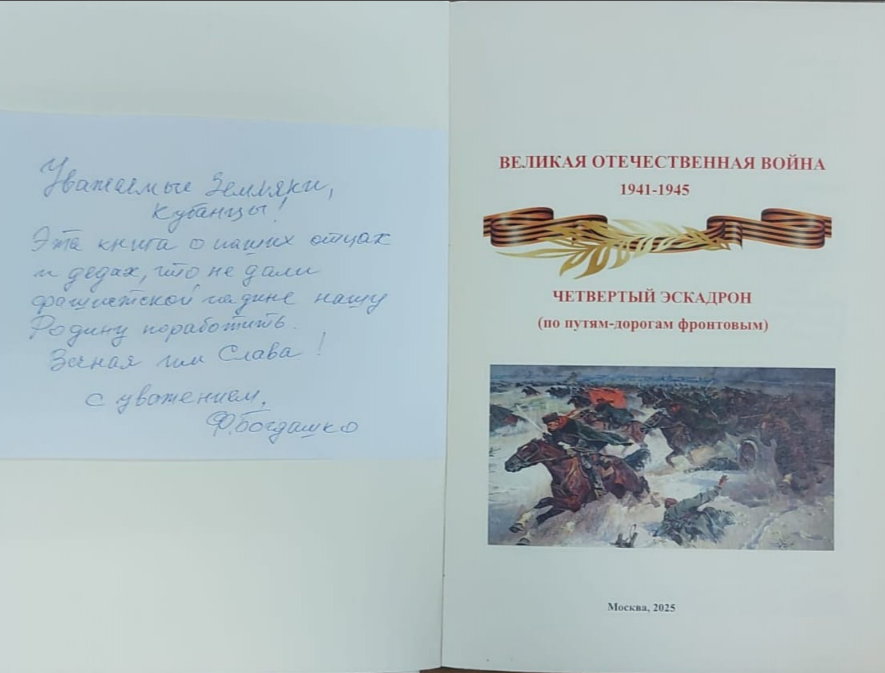 Уважаемые Земляки,
Кубанцы!
Эта книга о наших отцах
и дедах, что не дали
фашистской гадине нашу
Родину поработить.
Вечная им Слава!
С уважением,
Ф.Богдашко
ВЕЛИКАЯ ОТЕЧЕСТВЕННАЯ ВОЙНА
1941-1945
ЧЕТВЕРТЫЙ ЭСКАДРОН
(по путям-дорогам фронтовым)
Москва, 2025